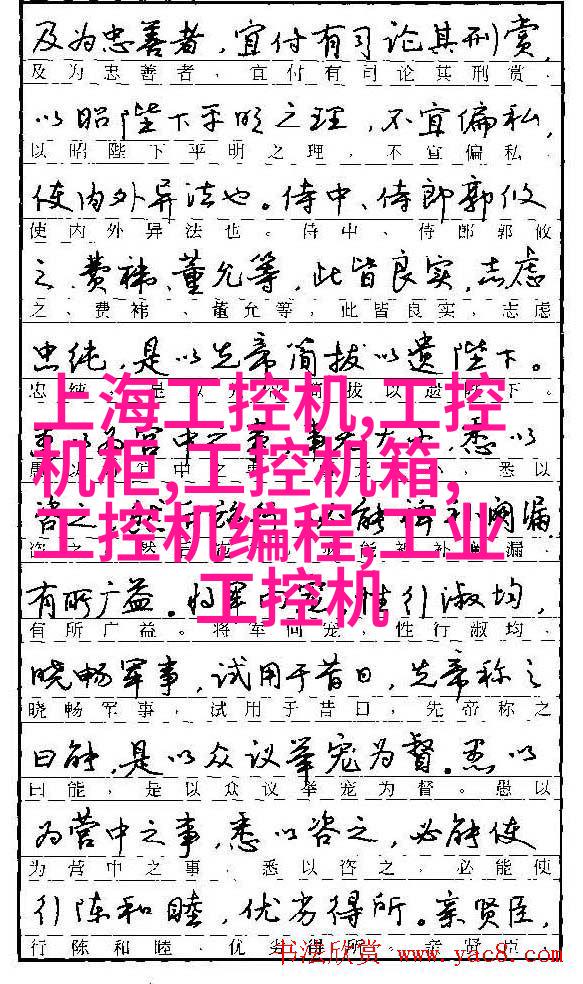 及为忠善者,宜付有司论其刑赏,
及为忠善者,宜付有司论其刑赏.
以昭陛下平明之理,不宜偏私,
以昭陛下平明之理,不宜偏私.
使内外异法也。侍中、侍郎郭攸
使内外异法也。侍中、侍郎郭攸
之、费祎、董允等,此皆良实,志虑
之、费祎、董允等,此皆良实,志虑
忠纯,是以先帝简拔以遗陛下。
忠纯 是以 简拔以遗陛下。
上海工控机,工控
机柜,工控机箱,
工控机编程,工业
工控机
以为宫中之事,事 大小,悉以
愚以 中之 小,悉以
咨之 阙漏
咨之 然 补 漏
有所广益。将军向宠,性行淑均,
有所广益。将军向宠,性行淑均.
晓畅军事,试用于昔日,先帝称之
晓畅军事,试用于昔日,先帝称之
曰能,是以众议举宠为督。愚以
曰能,是以众议举宠为督。愚以
为营中之事,悉以咨之,必能使
为营中之事 悉以咨之,必能使
行陈和睦,优劣得所。亲贤臣,
行陈和睦.优劣得所 亲贤臣.
书法欣赏 www.yac8.com